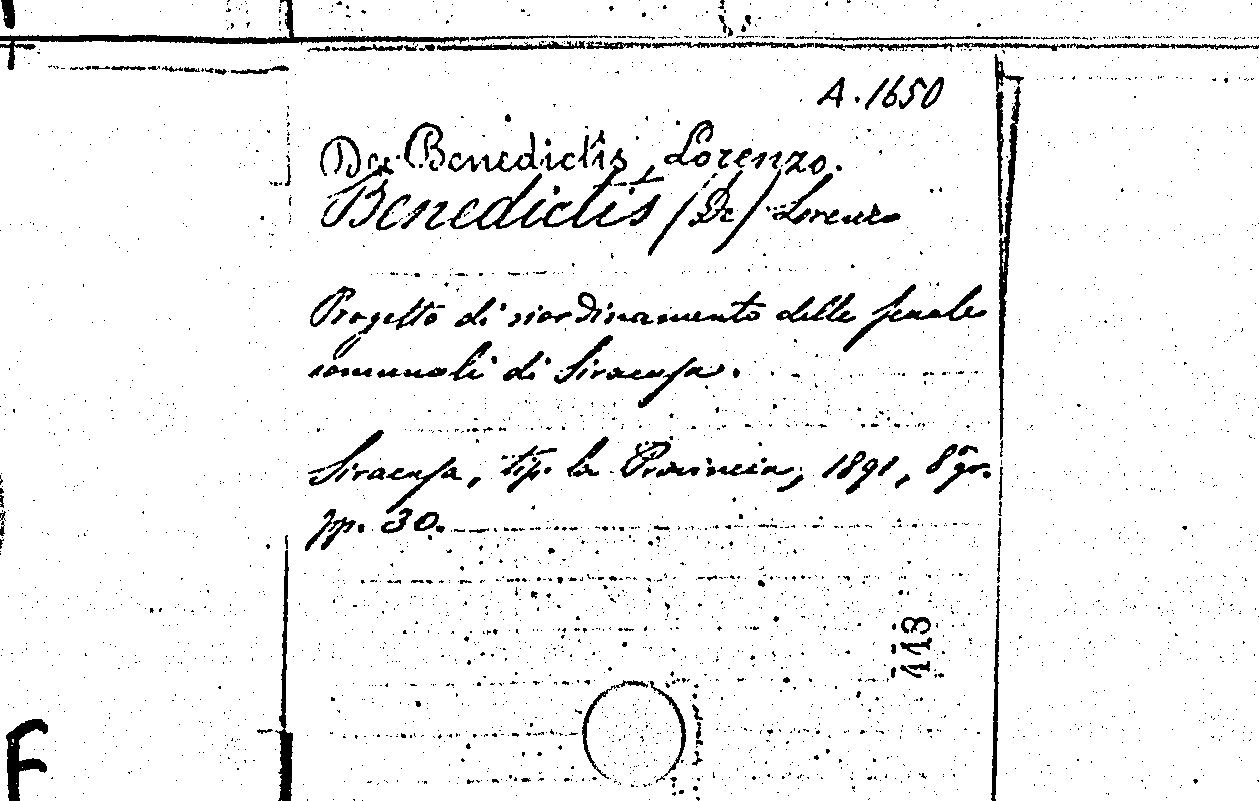 A. 1650
De Benedictis, Lorenzo.
Benedictis (De) Lorenzo
Progetto di riordinamento delle scuole
comunali di Siracusa.
Siracusa, tip. la Provincia, 1891, 8° gr.
pp. 30.
443
F